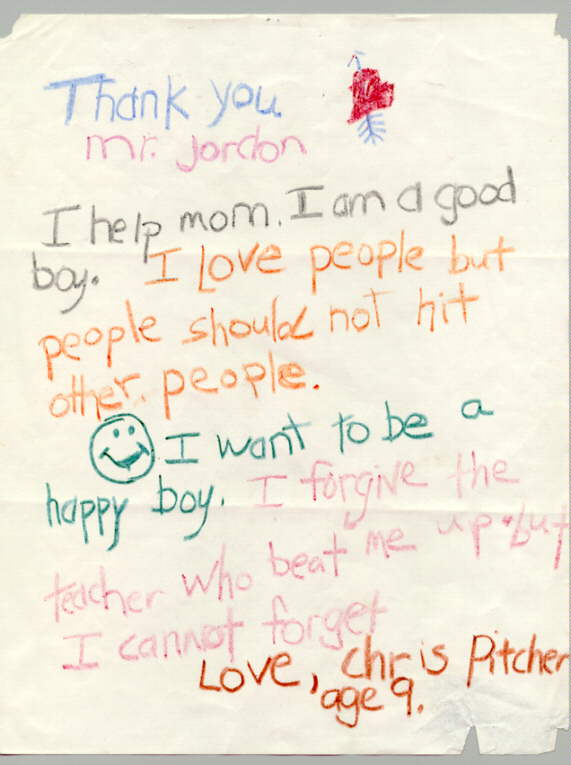 Thank you
mr. jordon
I help mom. I am a good
boy. I Love people but
people should not hit
other. people.
I want to be a
happy boy. I forgive the
teacher who beat me up but
I cannot forget
Love, chris Pitcher
age 9.